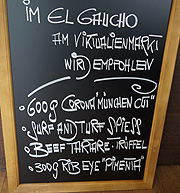 im EL GAUCHO
AM VIKTUALIENMARKT
WIRD EMPFOHLEN
• 600g CORONA "MÜNCHEN CUT"
• SURF AND TURF SPIESS
• BEEF TARTARE, TRÜFFEL
• 300g RIB EYE "PIMENTA"